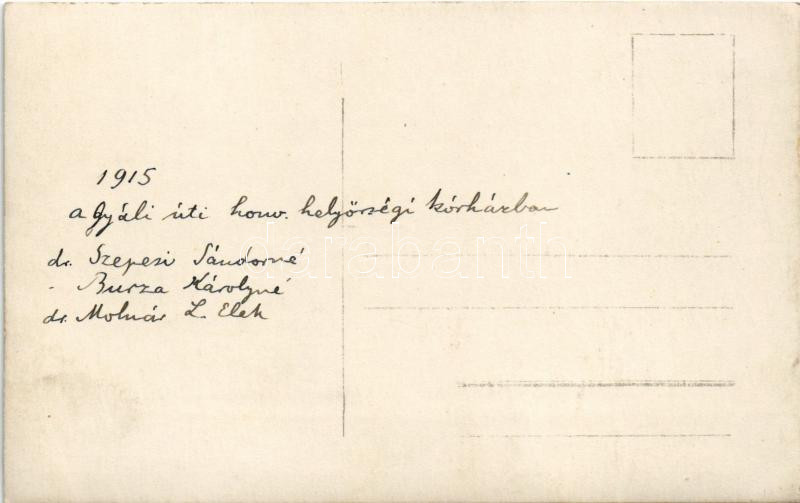 1915
a Gyáli úti honv. helyőrségi kórházban
dr. Szepesi Sándorné
- Burza Károlyné
dr. Molnár L. Elek
darabanth